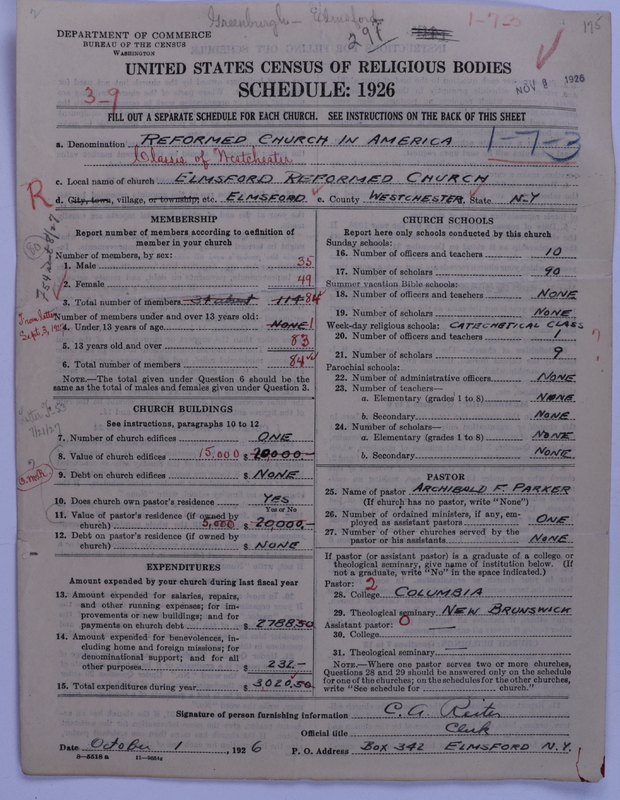 Greenburgh - Elmsford
DEPARTMENT OF COMMERCE
BUREAU OF THE CENSUS
WASHINGTON
29F
1-7-3
175
UNITED STATES CENSUS OF RELIGIOUS BODIES
SCHEDULE: 1926
NOV 8 1926
3-9
FILL OUT A SEPARATE SCHEDULE FOR EACH CHURCH. SEE INSTRUCTIONS ON THE BACK OF THIS SHEET
a. Denomination REFORMED CHURCH IN AMERICA 1-7-3
Classis of Westchester
c. Local name of church ELMSFORD REFORMED CHURCH
R
d. City, town, village, or township, etc. ELMSFORD e. County WESTCHESTER State N-Y
MEMBERSHIP
Report number of members according to definition of
member in your church
Number of members, by sex:
1. Male 35
2. Female 49
3. Total number of members 114 84
Number of members under and over 13 years old:
From letter Sept. 3, 19
4. Under 13 years of age NONE 1
5. 13 years old and over 83
6. Total number of members 84
NOTE.—The total given under Question 6 should be the
same as the total of males and females given under Question 3.
CHURCH BUILDINGS
See instructions, paragraphs 10 to 12
7. Number of church edifices ONE
8. Value of church edifices 15,000 $ 20000-
9. Debt on church edifices $ NONE
10. Does church own pastor's residence YES
Yes or No
11. Value of pastor's residence (if owned by
church) 5,000 $ 20,000,-
12. Debt on pastor's residence (if owned by
church) $ NONE
EXPENDITURES
Amount expended by your church during last fiscal year
13. Amount expended for salaries, repairs,
and other running expenses; for im-
provements or new buildings; and for
payments on church debt $ 2788.50
14. Amount expended for benevolences, in-
cluding home and foreign missions; for
denominational support; and for all
other purposes $ 232.-
15. Total expenditures during year $ 3020.50
CHURCH SCHOOLS
Report here only schools conducted by this church
Sunday schools:
16. Number of officers and teachers 10
17. Number of scholars 90
Summer vacation Bible schools:
18. Number of officers and teachers NONE
19. Number of scholars NONE
Week-day religious schools: CATECHETICAL CLASS
20. Number of officers and teachers 1
21. Number of scholars 9
Parochial schools:
22. Number of administrative officers NONE
23. Number of teachers—
a. Elementary (grades 1 to 8) NONE
b. Secondary NONE
24. Number of scholars—
a. Elementary (grades 1 to 8) NONE
b. Secondary NONE
PASTOR
25. Name of pastor ARCHIBALD F. PARKER
(If church has no pastor, write "None")
26. Number of ordained ministers, if any, em-
ployed as assistant pastors ONE
27. Number of other churches served by the
pastor or his assistants NONE
If pastor (or assistant pastor) is a graduate of a college or
theological seminary, give name of institution below. (If
not a graduate, write "No" in the space indicated.)
Pastor: 2
28. College COLUMBIA
29. Theological seminary NEW BRUNSWICK
Assistant pastor: 0
30. College —
31. Theological seminary —
NOTE.—Where one pastor serves two or more churches,
Questions 28 and 29 should be answered only on the schedule
for one of the churches; on the schedules for the other churches,
write "See schedule for church."
Signature of person furnishing information C. A. Reiter
Official title Clerk
Date October 1, 1926 P. O. Address BOX 342 ELMSFORD N.Y.
8—5518 a